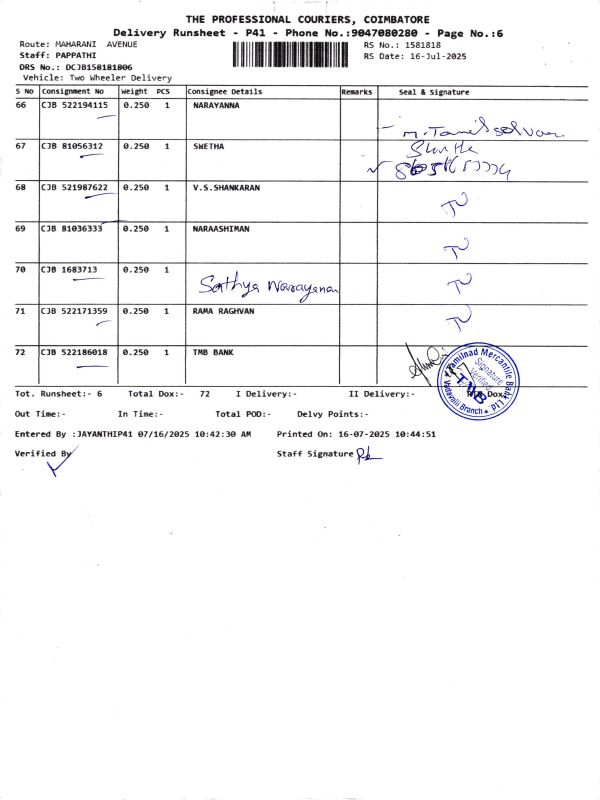 THE PROFESSIONAL COURIERS, COIMBATORE
Delivery Runsheet - P41 - Phone No.:9047080280 - Page No.:6
Route: MAHARANI AVENUE RS No.: 1581818
Staff: PAPPATHI RS Date: 16-Jul-2025
DRS No.: DCJB158181806
Vehicle: Two Wheeler Delivery
S No Consignment No Weight PCS Consignee Details Remarks Seal & Signature
66 CJB 522194115 0.250 1 NARAYANNA
M. Tamilselvan
67 CJB 81056312 0.250 1 SWETHA
68 CJB 521987622 0.250 1 V.S.SHANKARAN
69 CJB 81036333 0.250 1 NARAASHIMAN
70 CJB 1683713 0.250 1
Sathya Narayanan
71 CJB 522171359 0.250 1 RAMA RAGHVAN
72 CJB 522186018 0.250 1 TMB BANK
Tamilnad Mercantile Bank Ltd
Signature Verified
TMB
Vadavalli Branch
Tot. Runsheet:- 6 Total Dox:- 72 I Delivery:- II Delivery:- Dox
Out Time:- In Time:- Total POD:- Delvy Points:-
Entered By :JAYANTHIP41 07/16/2025 10:42:30 AM Printed On: 16-07-2025 10:44:51
Verified By Staff Signature